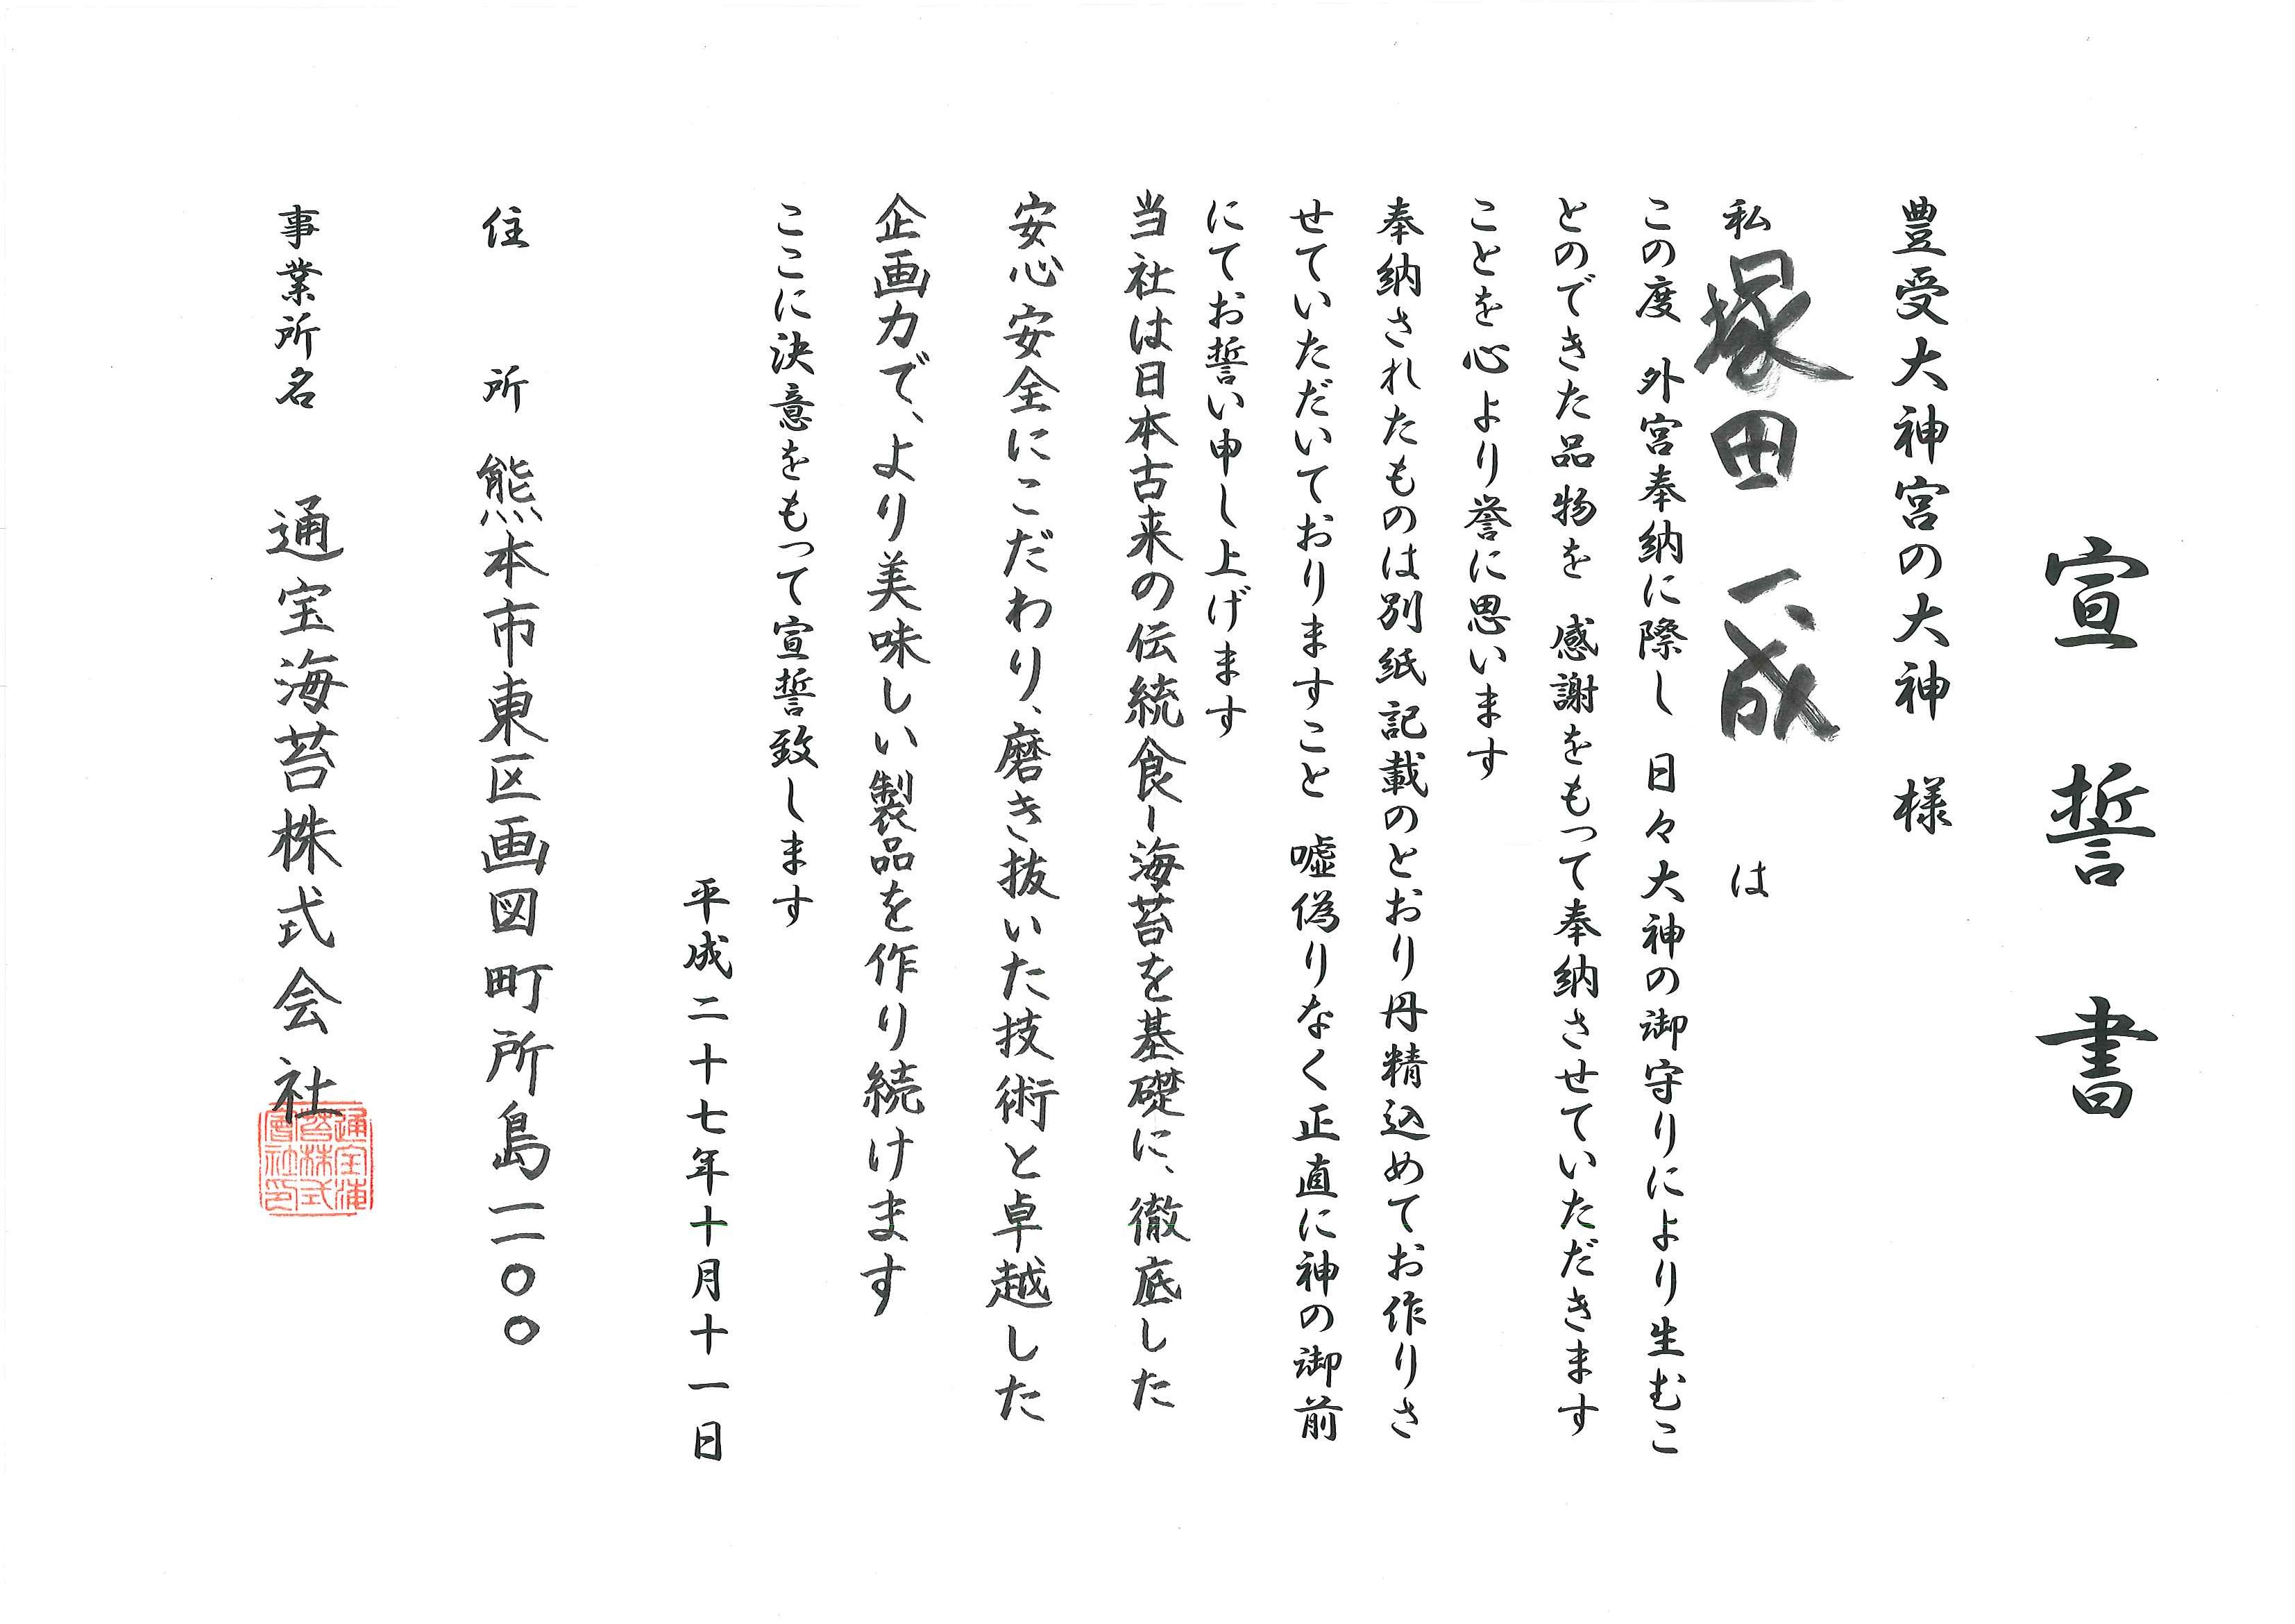 宣誓書
豊受大神宮の大神 様
私 塚田 一成 は
この度 外宮奉納に際し 日々大神の御守りにより生むこ
とのできた品物を 感謝をもって奉納させていただきます
ことを心より誉に思います
奉納されたものは別紙記載のとおり丹精込めてお作りさ
せていただいておりますこと 嘘偽りなく正直に神の御前
にてお誓い申し上げます
当社は日本古来の伝統食ー海苔を基礎に、徹底した
安心安全にこだわり、磨き抜いた技術と卓越した
企画力で、より美味しい製品を作り続けます
ここに決意をもって宣誓致します
平成二十七年十月十一日
住 所 熊本市東区画図町所島一一〇〇
事業所名 通宝海苔株式会社
通宝海
苔株式
會社印